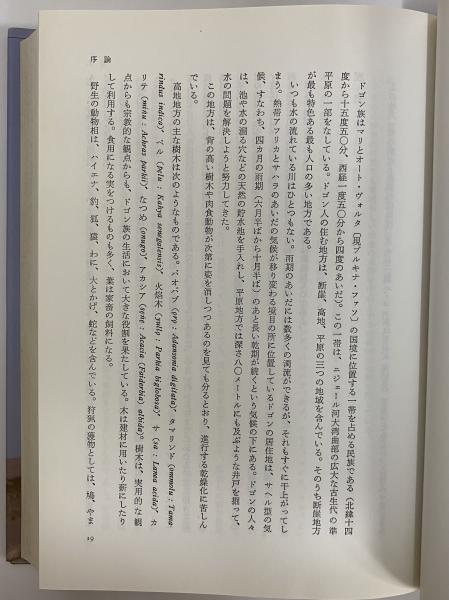 序論
ドゴン族はマリとオート・ヴォルタ（現ブルキナ・ファソ）の国境に位置する一帯を占める民族である（北緯十四
度から十五度五〇分、西経一度五〇分から四度のあいだ）。この一帯は、ニジェール河大湾曲部の広大な古生代の準
平原の一部をなしている。ドゴン人の住む地方は、断崖、高地、平原の三つの地域を含んでいる。そのうち断崖地方
が最も特色ある最も人口の多い地方である。
いつも水の流れている川はひとつもない。雨期のあいだには数多くの濁流ができるが、それもすぐに干上がってし
まう。熱帯アフリカとサハラのあいだの気候が移り変わる境目の所に位置しているドゴンの居住地は、サヘル型の気
候、すなわち、四カ月の雨期（六月半ばから十月半ば）のあと長い乾期が続くという気候の下にある。ドゴンの人々
は、池や水の溜る穴などの天然の貯水池を手入れし、平原地方では深さ八〇メートルにも及ぶような井戸を掘って、
水の問題を解決しようと努力してきた。
この地方は、背の高い樹木や肉食動物が次第に姿を消しつつあるのを見ても分るとおり、進行する乾燥化に苦しん
でいる。
高地地方の主な樹木は次のようなものである。バオバブ（oro : Adansonia digitata）、タマリンド（ommolu : Tama-
rindus indica）、ペル（pelu : Kahya senegalensis）、火焔木（yulo : Parkia biglobosa）、サ（sa : Lanea acida）、カ
リテ（minu : Achras parkii）、なつめ（onugo）、アカシア（sene : Acacia (Faidherbia) albida）。樹木は、実用的な観
点からも宗教的な観点からも、ドゴン族の生活において大きな役割を果たしている。木は建材に用いたり薪にしたり
して利用する。食用になる実をつけるものも多く、葉は家畜の飼料になる。
野生の動物相は、ハイエナ、豹、狐、猿、わに、大とかげ、蛇などを含んでいる。狩猟の獲物としては、鳩、やま
19